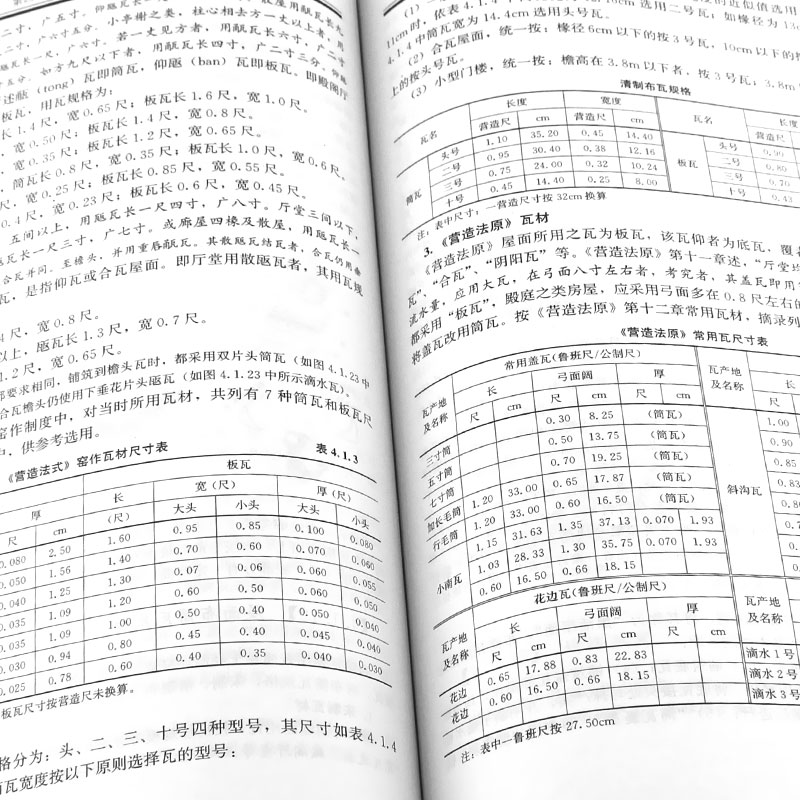 二寸，广五寸。仰瓪瓦长
二寸，广六寸五分。小亭榭之类，柱心相去方一丈以上者，用
瓦长一尺，广六寸。若一丈见方者，用瓪瓦长六寸，广二寸
五分。如方九尺以下者，用瓪瓦长四寸，广二寸三分，仰瓪
(tong)瓦即筒瓦，仰瓪(ban)瓦即板瓦。即殿阁厅
板瓦，用瓦规格为：
长1.4尺，宽0.65尺；板瓦长1.6尺，宽1.0尺。
尺，宽0.50尺；板瓦长1.4尺，宽0.8尺。
宽0.35尺；板瓦长1.2尺，宽0.65尺。
筒瓦长0.8尺，宽0.35尺；板瓦长1.0尺，宽0.6尺。
尺，宽0.25尺；板瓦长0.85尺，宽0.55尺。
0.4尺，宽0.23尺；板瓦长0.6尺，宽0.45尺。
五间以上，用瓪瓦长一尺四寸，广八寸。厅堂三间以下，
瓦长一尺三寸，广七寸。或廊屋四椽及散屋，用瓪瓦长一
合瓦并同。至檐头，并用重唇瓪瓦。其散瓪瓦结瓦者，合瓦仍用垂
瓦，是指仰瓦或合瓦屋面。即厅堂用散瓪瓦者，其用瓦规
尺，宽0.8尺。
以上，瓪瓦长1.3尺，宽0.7尺。
1.2尺，宽0.65尺。
要求相同，铺筑到檐头瓦时，都采用双片头筒瓦（如图4.1.23中
合瓦檐头仍使用下垂花片头瓪瓦（如图4.1.23中所示滴水瓦）。
窑作制度中，对当时所用瓦材，共列有7种筒瓦和板瓦尺
中，供参考选用。
《营造法式》窑作瓦材尺寸表 表4.1.3
板瓦
厚 长 宽（尺） 厚（尺）
尺 cm （尺） 大头 小头 大头 小头
0.080 2.50 1.60 0.95 0.85 0.100 0.080
0.050 1.56 1.40 0.70 0.60 0.070 0.060
0.040 1.25 1.30 0.07 0.06 0.060 0.055
0.035 1.09 1.20 0.60 0.50 0.060 0.050
0.035 1.09 1.00 0.50 0.40 0.050 0.040
0.030 0.94 0.80 0.45 0.40 0.045 0.040
0.025 0.78 0.60 0.40 0.35 0.040 0.030
板瓦尺寸按营造尺未换算。
格分为：头、二、三、十号四种型号，其尺寸如表4.1.4
瓦宽度按以下原则选择瓦的型号：
11cm时，依表4.1
4.1.4中筒瓦宽为14.4cm选用头号瓦。
(2) 合瓦屋面，统一按：椽径6cm以下的按3号瓦，10cm以下的按
上的按头号瓦。
(3) 小型门楼，统一按：檐高在3.8m以下者，按3号瓦；3.8m
清制布瓦规格
瓦名 长度 宽度 瓦名 长度
营造尺 cm 营造尺 cm 营造尺
筒瓦 头号 1.10 35.20 0.45 14.40 板瓦 头号 0.90
二号 0.95 30.40 0.38 12.16 二号 0.80
三号 0.75 24.00 0.32 10.24 三号 0.70
十号 0.45 14.40 0.25 8.00 十号 0.43
注：表中尺寸：一营造尺寸按32cm换算
3.《营造法原》瓦材
《营造法原》屋面所用之瓦为板瓦，该瓦仰者为底瓦，覆
瓦”、“合瓦”、“阴阳瓦”等。《营造法原》第十一章述，“厅堂
流水量，应用大瓦，在弓面八寸左右者，考究者，其盖瓦即用
都采用“板瓦”，殿庭之类房屋，应采用弓面多在0.8尺左右的
将盖瓦改用筒瓦。按《营造法原》第十二章常用瓦材，摘录列
《营造法原》常用瓦尺寸表
瓦产地及名称 常用盖瓦(鲁班尺/公制尺) 瓦产地及名称
长 弓面阔 厚 长
尺 cm 尺 cm 尺 cm 尺
三寸筒 0.30 8.25 (筒瓦)
五寸筒 0.50 13.75 (筒瓦)
七寸筒 0.70 19.25 (筒瓦)
加长毛筒 1.20 33.00 0.65 17.87 (筒瓦)
行毛筒 1.20 33.00 0.60 16.50 (筒瓦)
小南瓦 1.15 31.63 1.35 37.13 0.070 1.93
1.03 28.33 1.30 35.75 0.070 1.93
0.60 16.50 0.66 18.15
斜沟瓦
1.00
0.90
花边瓦(鲁班尺/公制尺)
瓦产地及名称 长 弓面阔 厚 瓦产地及名称
尺 cm 尺 cm 尺 cm
花边 0.65 17.88 0.83 22.83 滴水1号
花边 0.60 16.50 0.66 18.15 滴水2号
滴水3号
注：表中一鲁班尺按27.50cm